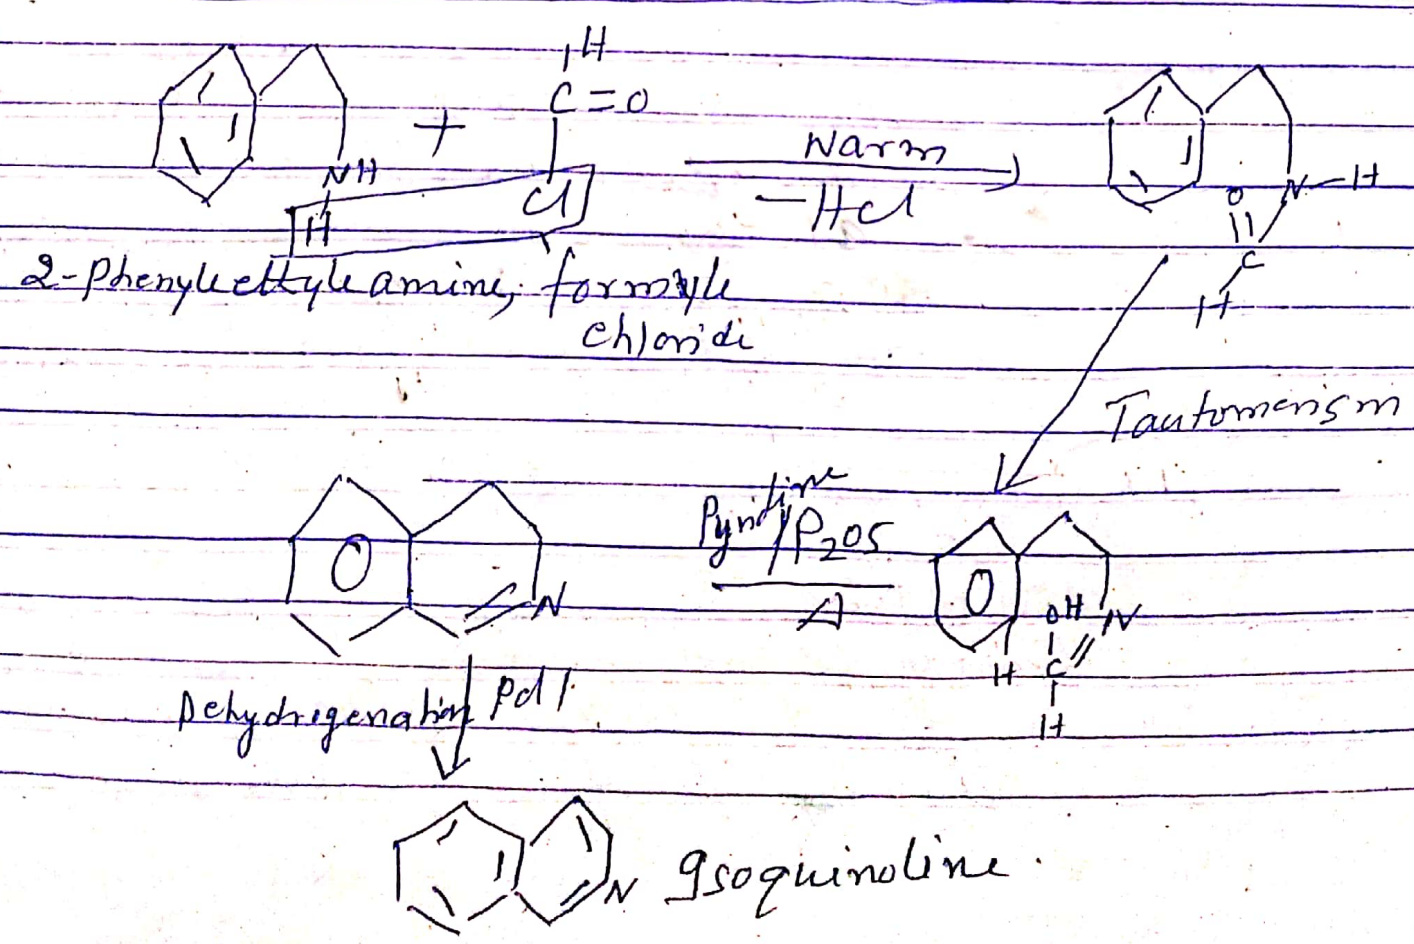 H
C=O
+
NH
H
Cl
Warm
-HCl
O
N-H
C
H
2-Phenyleethyle amine, formyle
chloride
Tautomerism
Pyridine
/P2O5
Δ
N
OH
N
H
C
H
Dehydrogenation
Pd/
N
Isoquinoline.